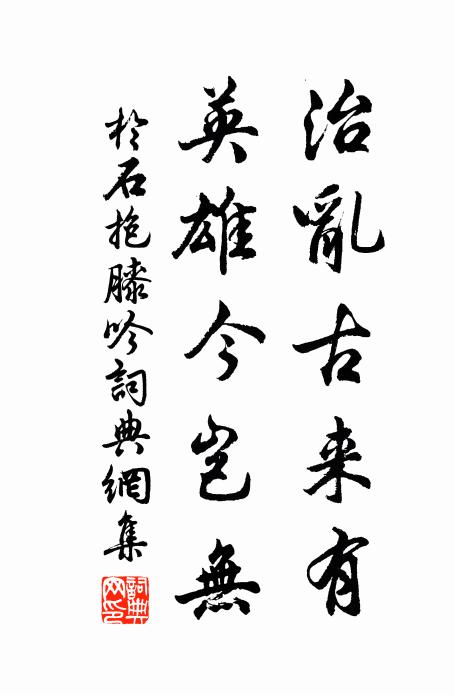 治亂古来有
英雄今豈無
於石抱膝吟詞典網集
詞典网印